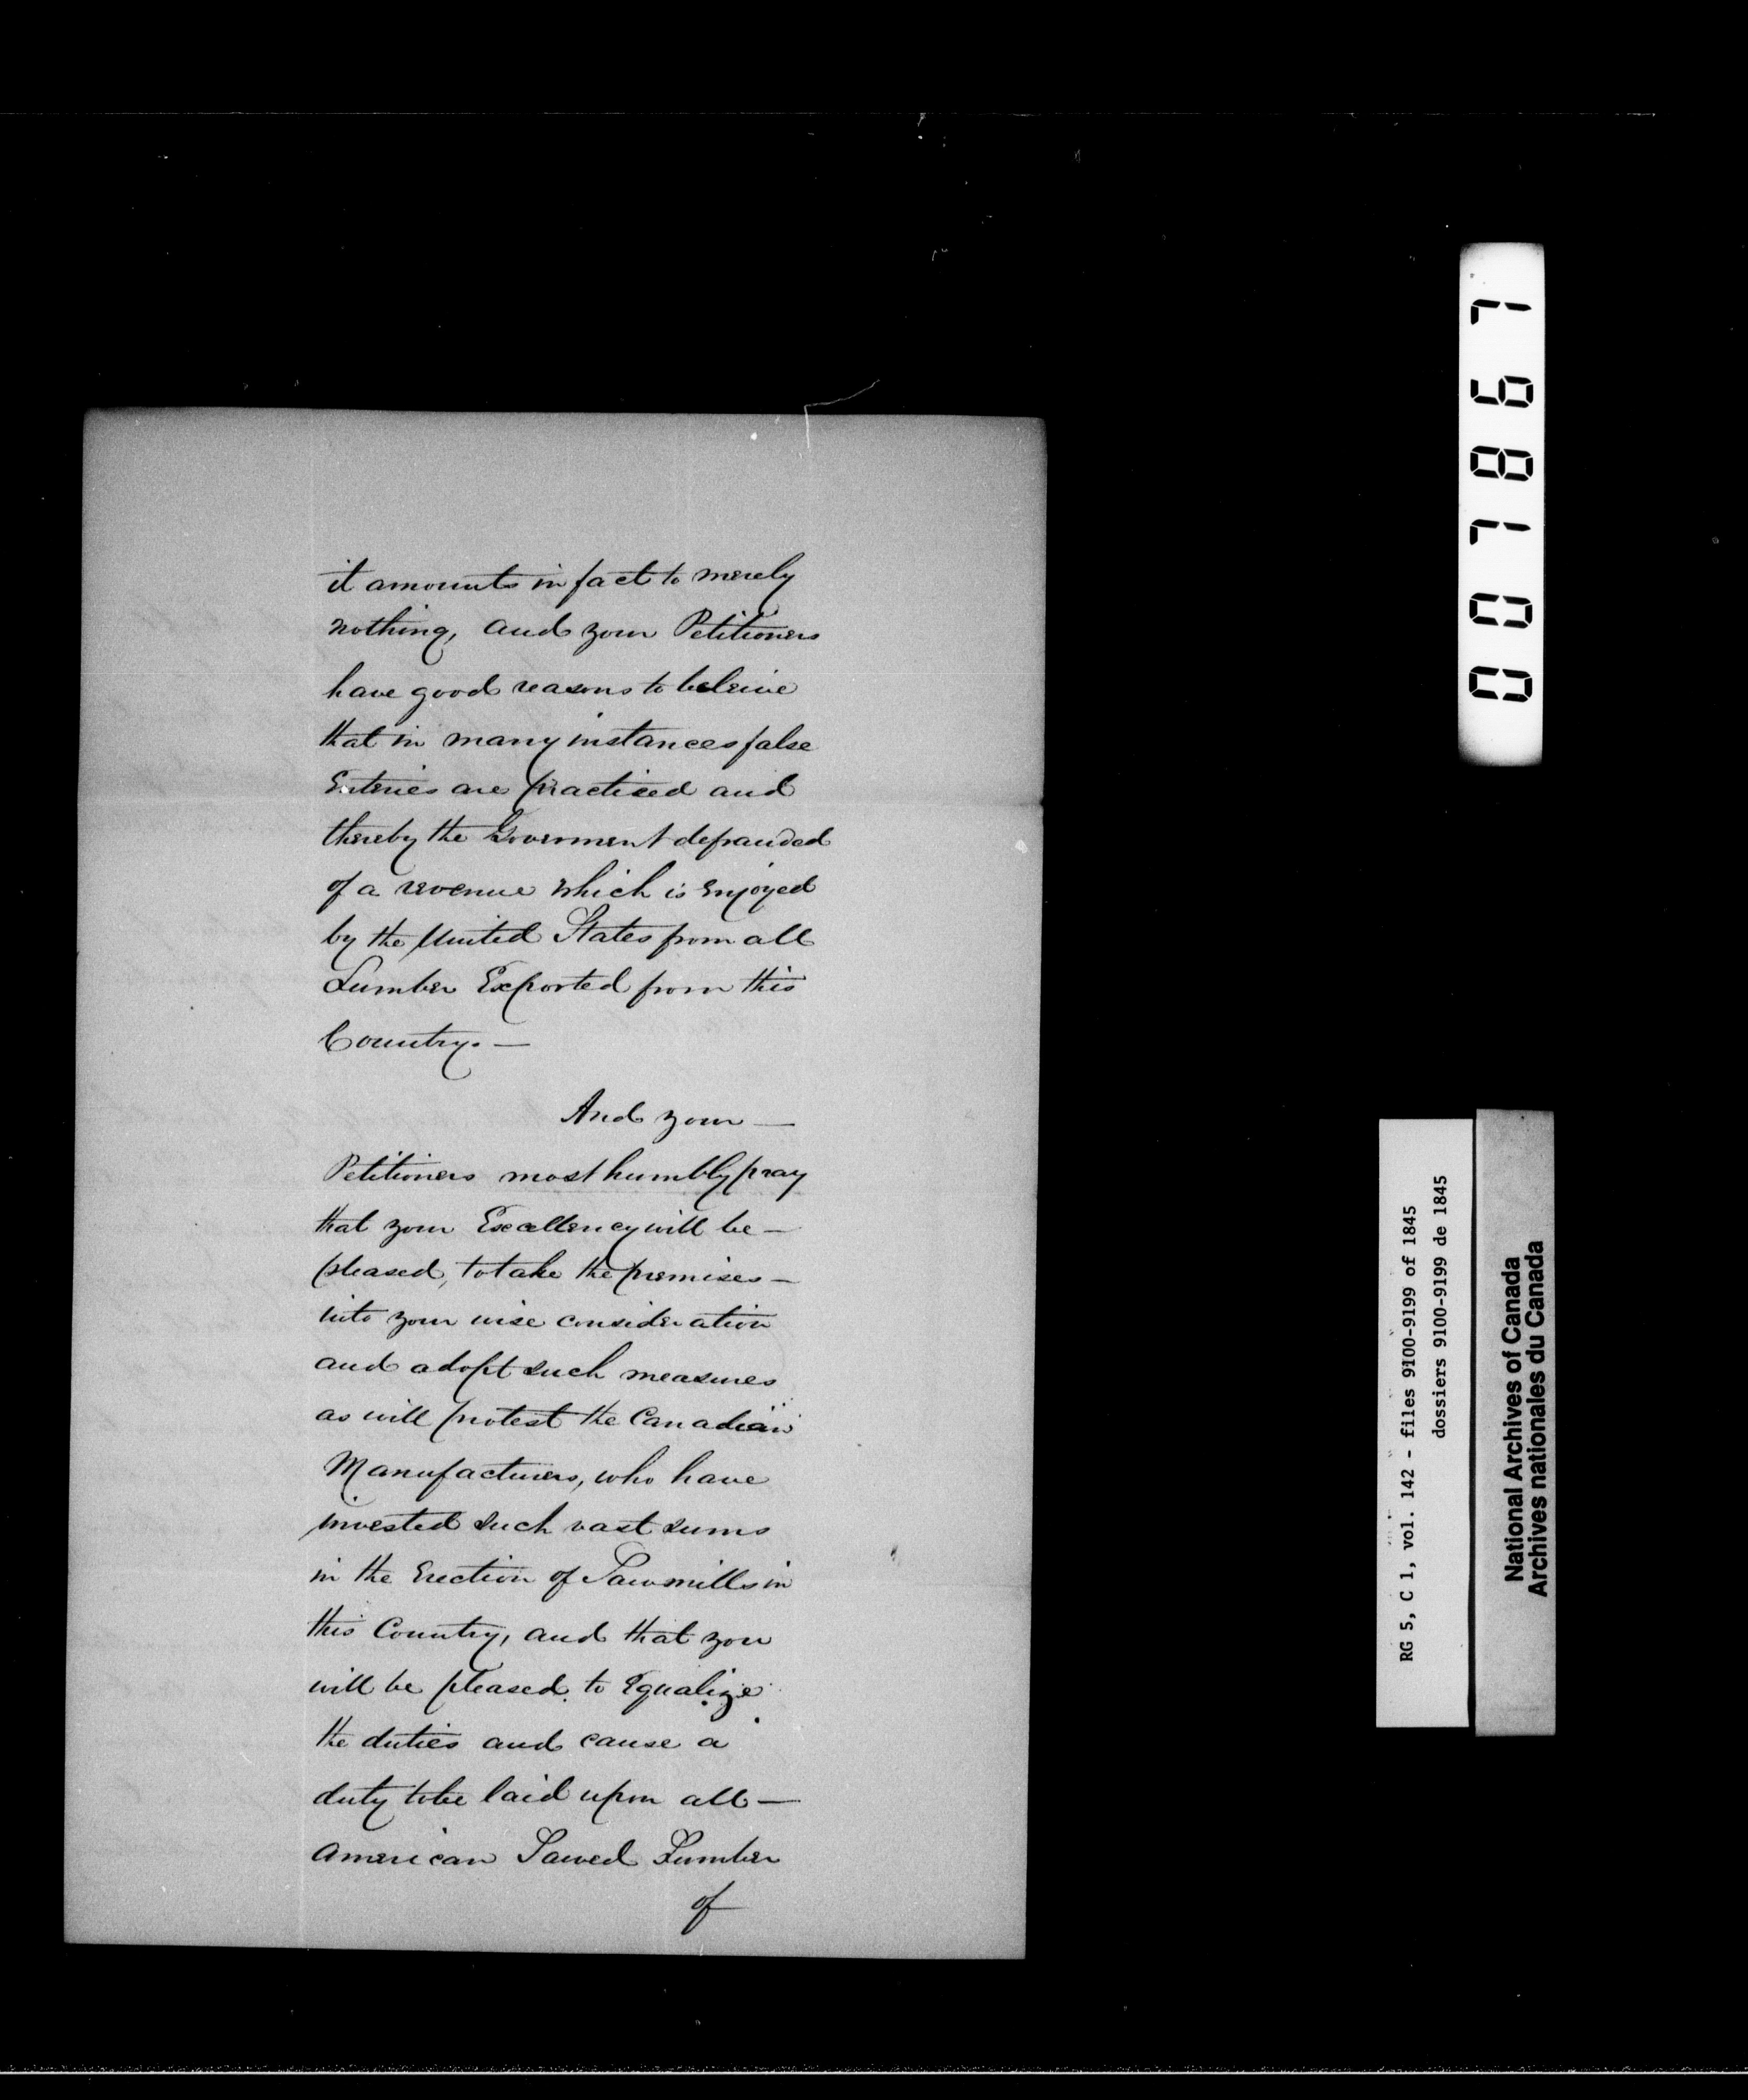 it amounts in fact to merely
nothing, and your Petitioners
have good reasons to beleive
that in many instances false
Enteries are practised and
thereby the Goverment defrauded
of a revenue which is Enjoyed
by the United States from all
Lumber Exported from this
Country. —
And your —
Petitioners most humbly pray
that your Excellency will be —
pleased, to take the premises —
into your wise consideration
and adopt such measures
as will protect the Canadian
Manufacturers, who have
invested such vast sums
in the Erection of Sawmills in
this Country, and that you
will be pleased to Equalize
the duties and cause a
duty to be laid upon all —
American Sawed Lumber
of
007867
RG 5, C 1, vol. 142 - files 9100-9199 of 1845
dossiers 9100-9199 de 1845
National Archives of Canada
Archives nationales du Canada